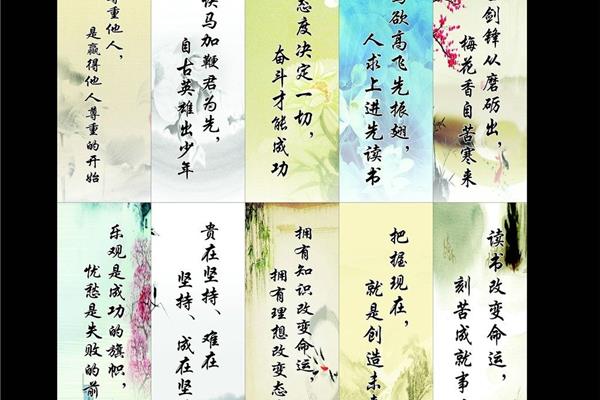 尊重他人，
是赢得他人尊重的开始
马加鞭君为先，
自古英雄出少年
态度决定一切，
奋斗才能成功
欲高飞先振翅，
人求上进先读书
剑锋从磨砺出，
梅花香自苦寒来
乐观是成功的旗帜，
忧愁是失败的前
贵在坚持、难在
坚持、成在坚
拥有知识改变命运，
拥有理想改变态
把握现在，
就是创造未
读书改变命运，
刻苦成就事